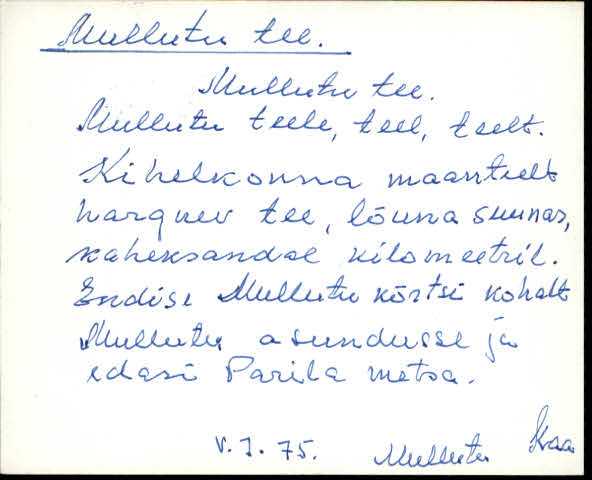 Mullutu tee.
Mullutu tee.
Mullutu teele, teel, teelt.
Kihelkonna maanteelt
hargnev tee, lõuna suunas,
kaheksandal kilomeetril.
Endise Mullutu kõrtsi kohalt
Mullutu asundusse ja
edasi Parila metsa.
V. J. 75. Mullutu Kaa